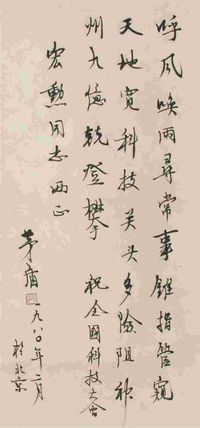 呼风唤雨寻常事锥指管窥
天地宽科技关头多险阻神
州九亿竞登攀 祝全国科技大会
宏勳同志两正
茅盾
一九八〇年二月
於北京